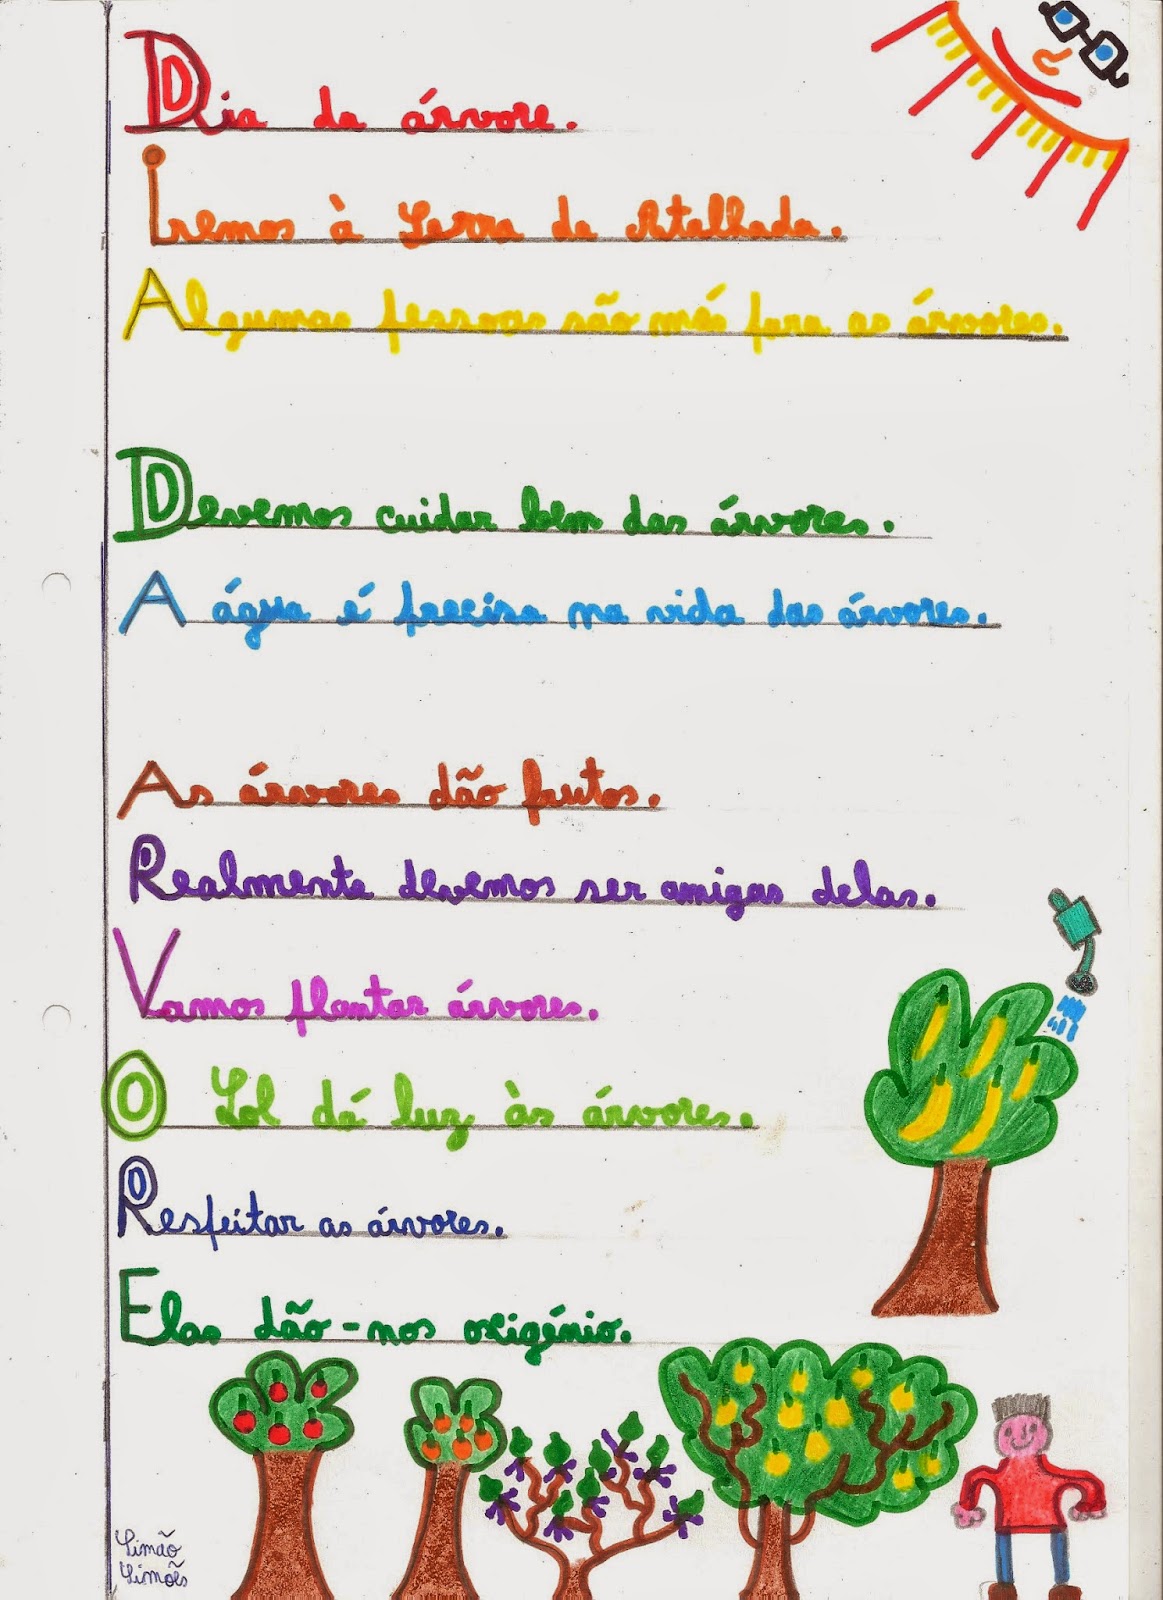 Dia da árvore.
Iremos à Serra da Atelhada.
Algumas pessoas são más para as árvores.
Devemos cuidar bem das árvores.
A água é precisa na vida das árvores.
As árvores dão frutos.
Realmente devemos ser amigas delas.
Vamos plantar árvores.
O Sol dá luz às árvores.
Respeitar as árvores.
Elas dão-nos oxigénio.
Simão
Simões